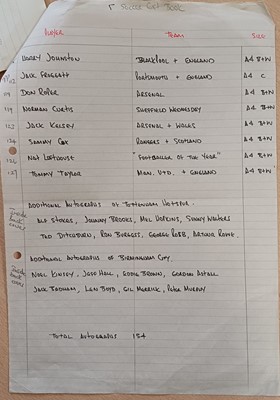 PLAYER TEAM SIZE
HARRY JOHNSTON BLACKPOOL + ENGLAND A4 B+W
JACK FROGGATT PORTSMOUTH + ENGLAND A4 C
DON ROPER ARSENAL A4 B+W
119 NORMAN CURTIS SHEFFIELD WEDNESDAY A4 B+W
123 JACK KELSEY ARSENAL + WALES A4 B+W
124 SAMMY COX RANGERS + SCOTLAND A4 B+W
126 NAT LOFTHOUSE "FOOTBALLER OF THE YEAR" A4 B+W
127 TOMMY TAYLOR MAN. UTD. + ENGLAND A4 B+W
ADDITIONAL AUTOGRAPHS OF TOTTENHAM HOTSPUR.
ALF STOKES, JOHNNY BROOKS, MEL HOPKINS, SONNY WALTERS
TED DITCHBURN, RON BURGESS, GEORGE ROBB, ARTHUR ROWE.
ADDITIONAL AUTOGRAPHS OF BIRMINGHAM CITY.
NOEL KINSEY, JEFF HALL, EDDIE BROWN, GORDON ASTALL
JACK BADHAM, LEN BOYD, GIL MERRICK, PETER MURPHY
TOTAL AUTOGRAPHS 154